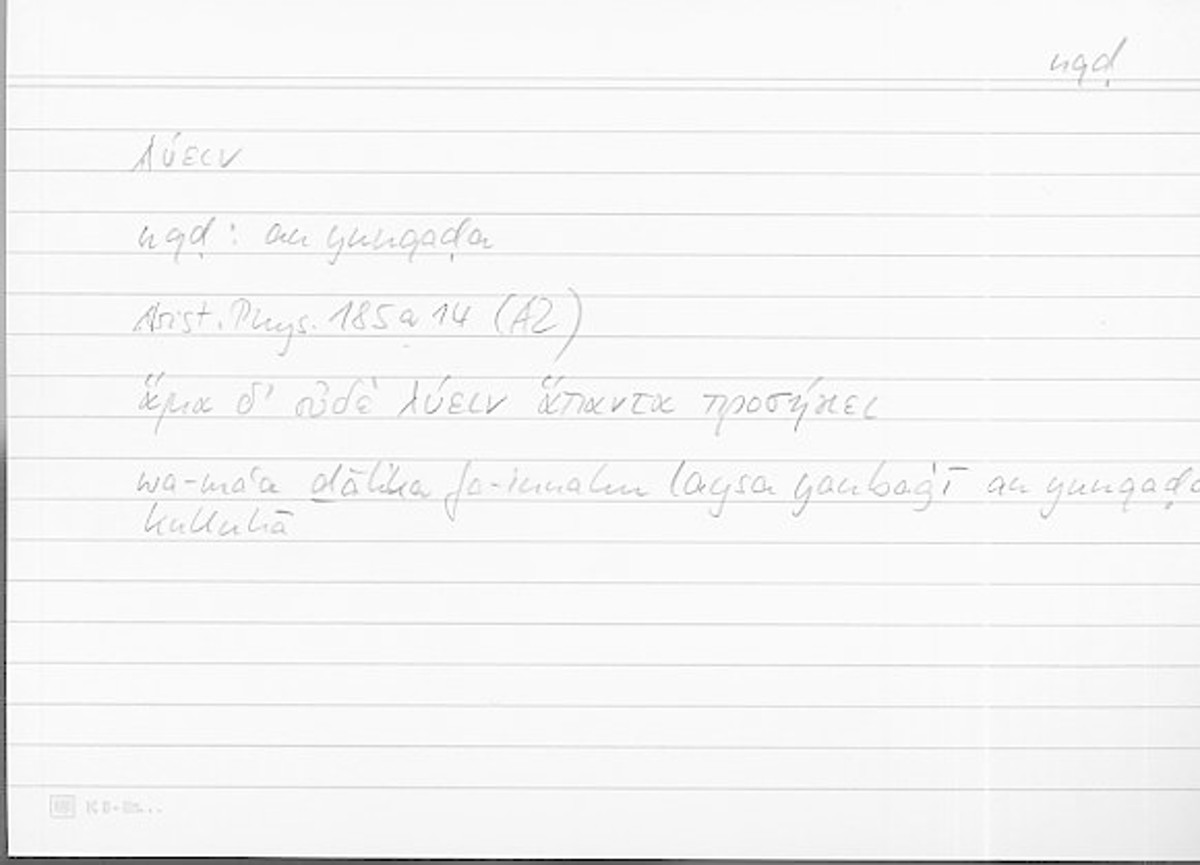 nqḍ
λύειν
nqḍ : an yunqaḍa
Arist. Phys. 185 a 14 (A2)
ἅμα δ' οὐδὲ λύειν ἅπαντα προσήκει
wa-maʿa ḏālika fa-innahu laysa yanbaġī an yunqaḍa
kulluhā